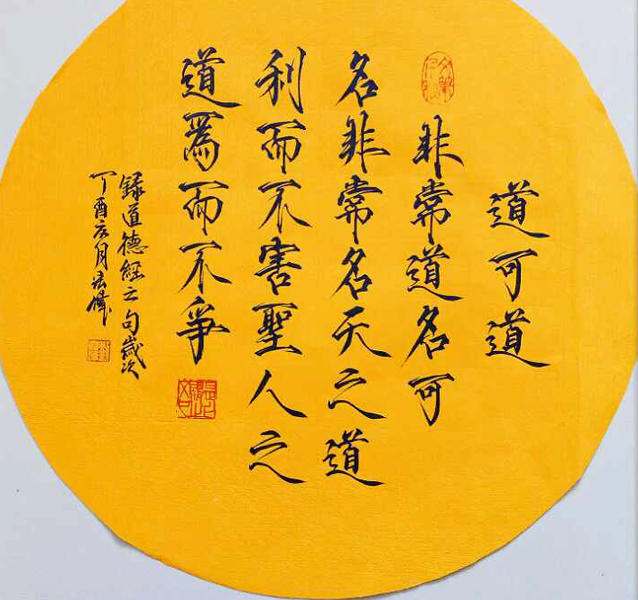 道可道
非常道名可
名非常名天之道
利而不害聖人之
道爲而不爭
録道德經之句歲次
丁酉亥月